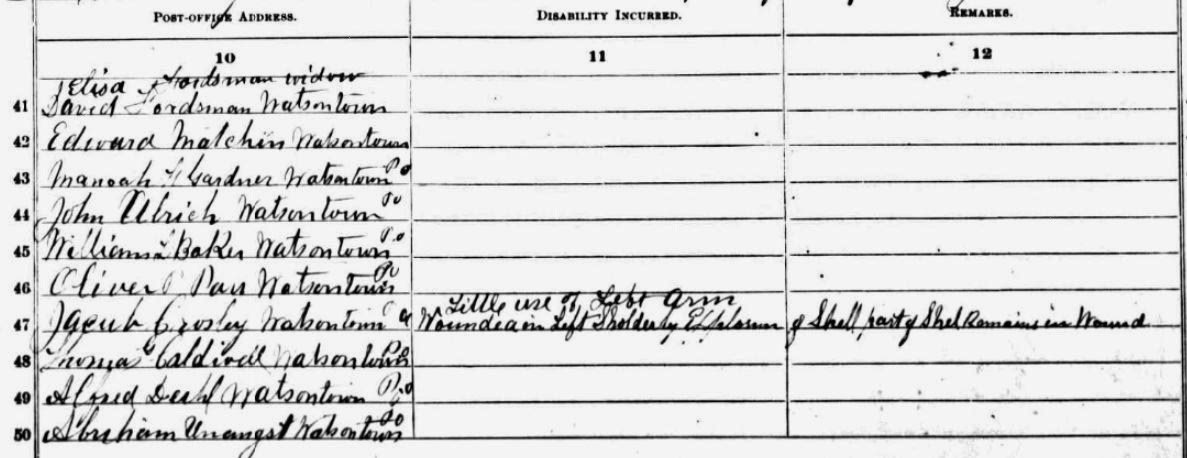 POST-OFFICE ADDRESS. DISABILITY INCURRED. REMARKS.
10 11 12
Elisa Fordsman widow
41 David Fordsman Watsontown
42 Edward Matchin Watsontown
43 Manoah Gardner Watsontown Po
44 John Ulrich Watsontown
45 William Baker Watsontown Po
46 Oliver Watsontown Po
Little use of Left Arm
47 Jacob Crosley Watsontown Wounded in Left Sholder by Explosion of Shell part of Shel Remains in Wound
48 Thomas Caldwell Watsontown Po
49 Alfred Watsontown Po
50 Abraham Unangst Watsontown Po